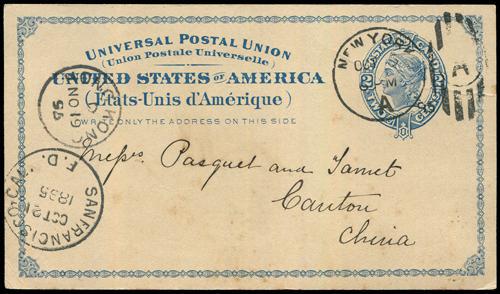 UNIVERSAL POSTAL UNION
(Union Postale Universelle)
UNITED STATES OF AMERICA
(États-Unis d'Amérique)
WRITE ONLY THE ADDRESS ON THIS SIDE
NEW YORK
A
A
TWO CENTS
NO 19
SAN FRANCISCO, CAL.
OCT 21
1895
F.D.
Messrs Pasquet and Jamet
Canton
China